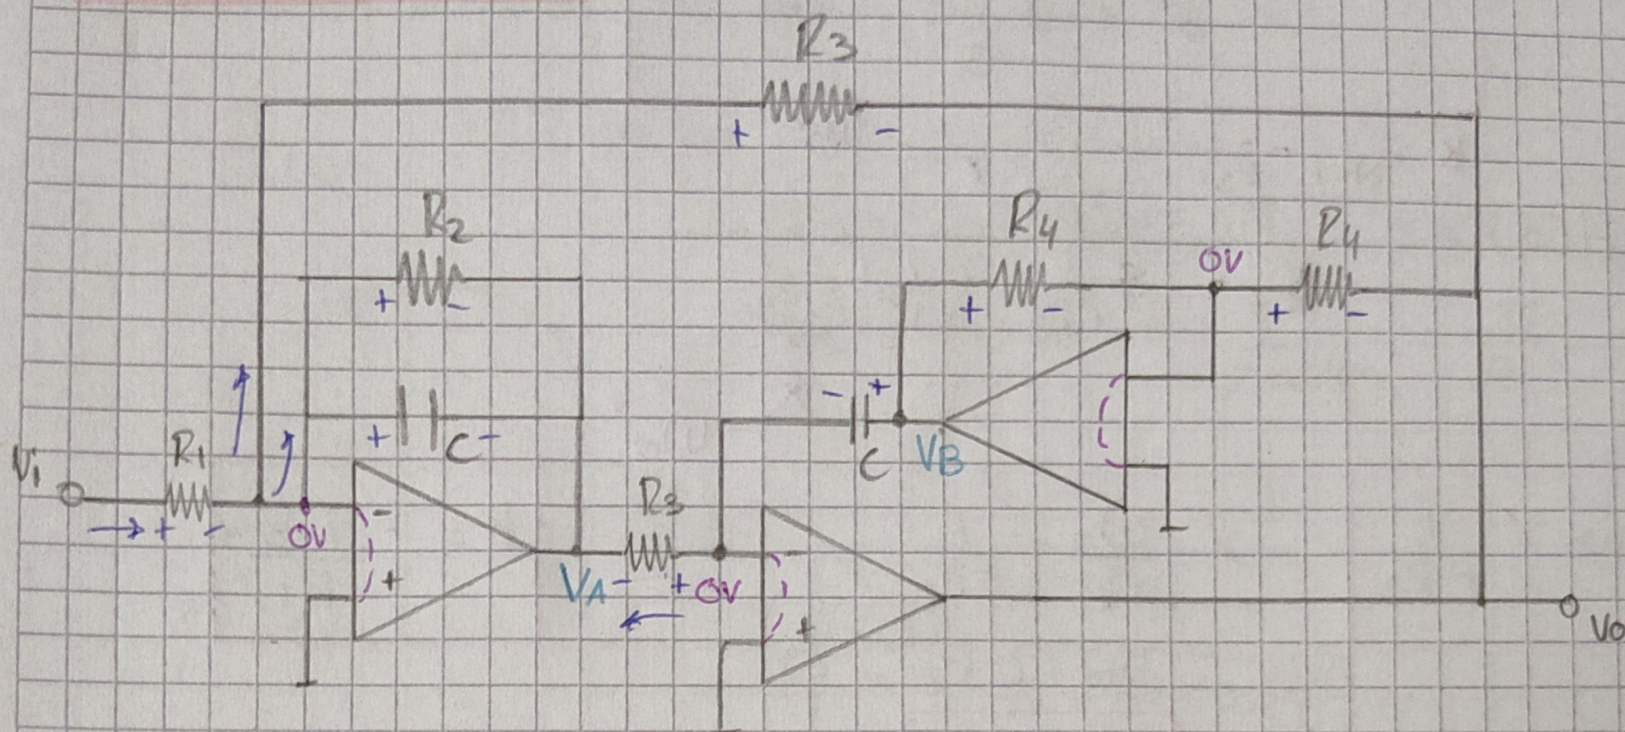 R3
+ -
R2
+ -
R4
+ -
0V
R4
+ -
+ C -
- +
C
VB
Vi
R1
+ -
0V
-
+
R3
VA - + 0V
-
+
Vo